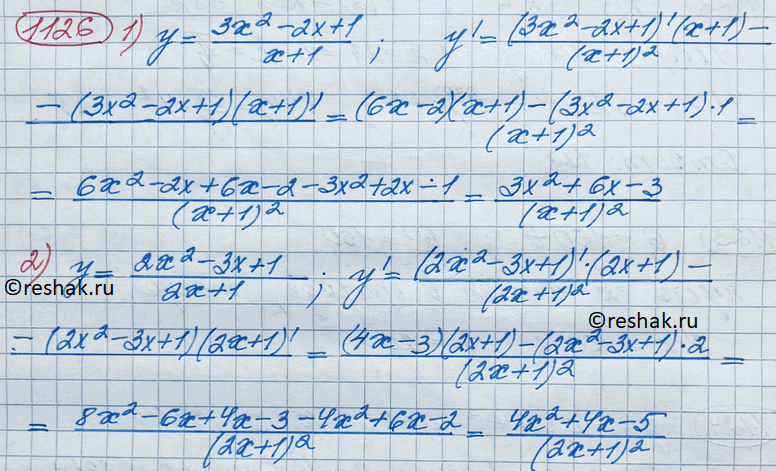 1126 1) y = (3x² - 2x + 1)/(x + 1) ; y' = ((3x² - 2x + 1)'(x + 1) -)/((x + 1)²)
- (3x² - 2x + 1)(x + 1)' = ((6x - 2)(x + 1) - (3x² - 2x + 1) · 1)/((x + 1)²) =
= (6x² - 2x + 6x - 2 - 3x² + 2x - 1)/((x + 1)²) = (3x² + 6x - 3)/((x + 1)²)
2) y = (2x² - 3x + 1)/(2x + 1) ; y' = ((2x² - 3x + 1)' · (2x + 1) -)/((2x + 1)²)
©reshak.ru
©reshak.ru
- (2x² - 3x + 1)(2x + 1)' = ((4x - 3)(2x + 1) - (2x² - 3x + 1) · 2)/((2x + 1)²) =
= (8x² - 6x + 4x - 3 - 4x² + 6x - 2)/((2x + 1)²) = (4x² + 4x - 5)/((2x + 1)²)